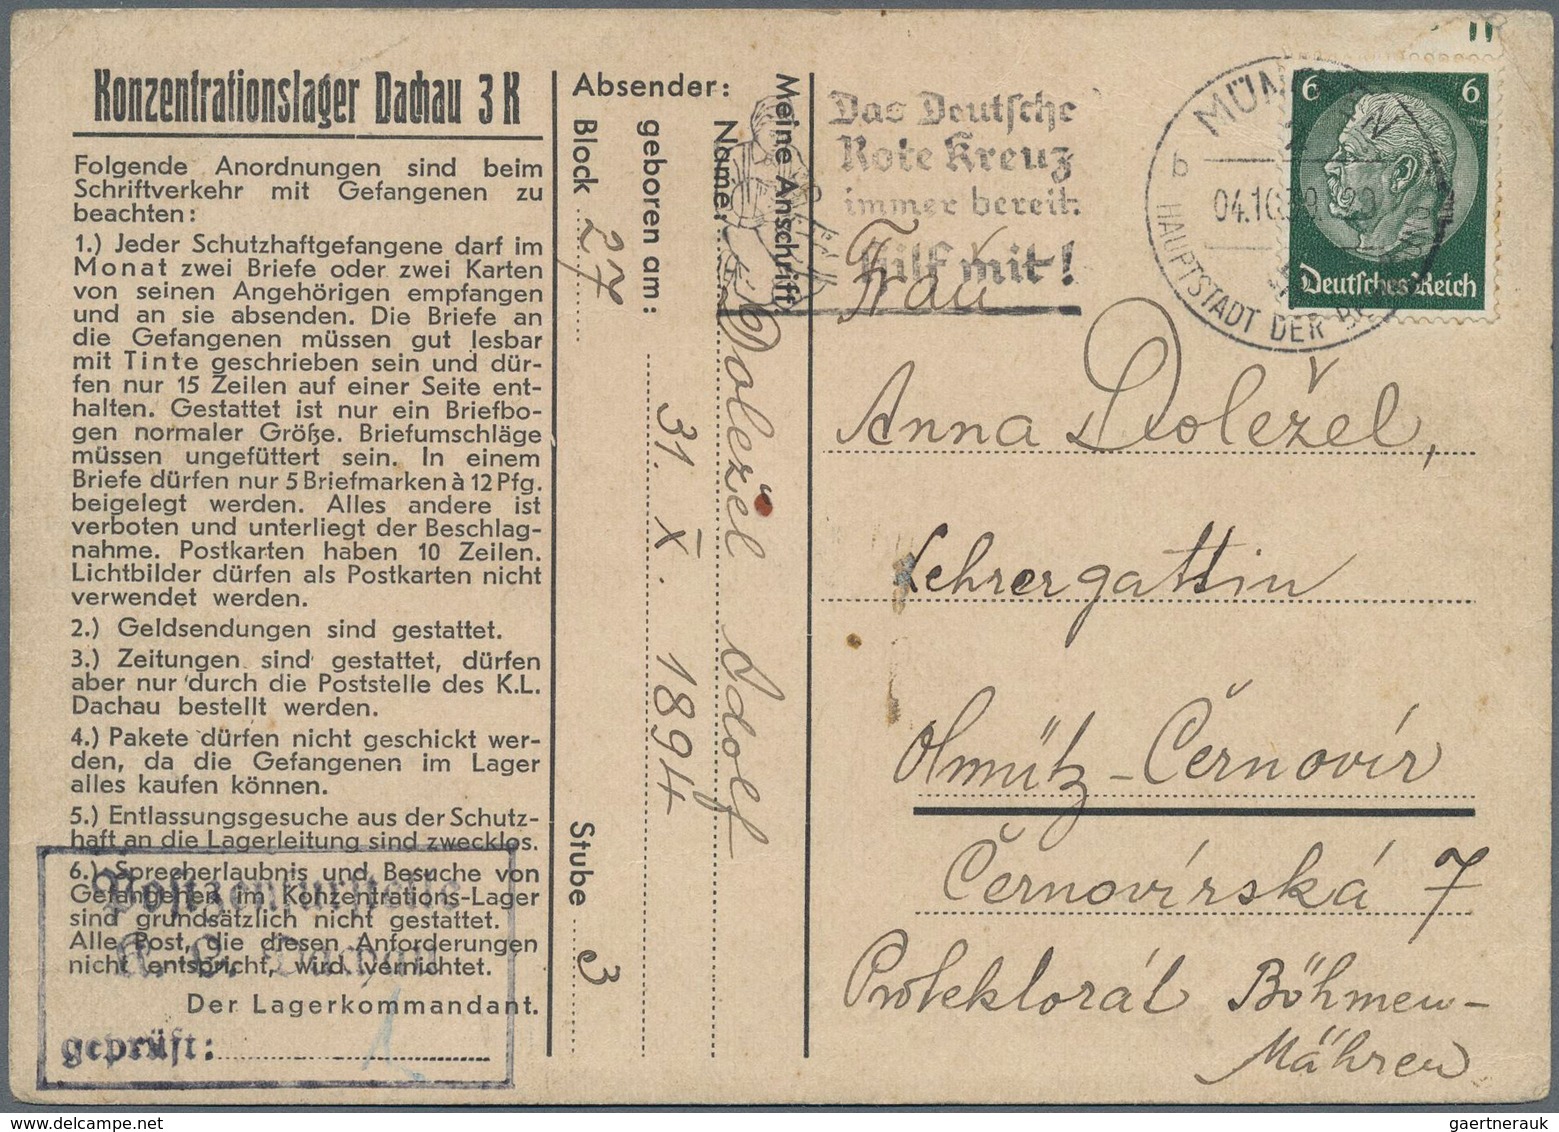 Konzentrationslager Dachau 3 K
Folgende Anordnungen sind beim
Schriftverkehr mit Gefangenen zu
beachten:
1.) Jeder Schutzhaftgefangene darf im
Monat zwei Briefe oder zwei Karten
von seinen Angehörigen empfangen
und an sie absenden. Die Briefe an
die Gefangenen müssen gut lesbar
mit Tinte geschrieben sein und dür-
fen nur 15 Zeilen auf einer Seite ent-
halten. Gestattet ist nur ein Briefbo-
gen normaler Größe. Briefumschläge
müssen ungefüttert sein. In einem
Briefe dürfen nur 5 Briefmarken à 12 Pfg.
beigelegt werden. Alles andere ist
verboten und unterliegt der Beschlag-
nahme. Postkarten haben 10 Zeilen.
Lichtbilder dürfen als Postkarten nicht
verwendet werden.
2.) Geldsendungen sind gestattet.
3.) Zeitungen sind gestattet, dürfen
aber nur durch die Poststelle des K.L.
Dachau bestellt werden.
4.) Pakete dürfen nicht geschickt wer-
den, da die Gefangenen im Lager
alles kaufen können.
5.) Entlassungsgesuche aus der Schutz-
haft an die Lagerleitung sind zwecklos.
6.) Sprecherlaubnis und Besuche von
Gefangenen im Konzentrations-Lager
sind grundsätzlich nicht gestattet.
Alle Post, die diesen Anforderungen
nicht entspricht, wird vernichtet.
Der Lagerkommandant.
Postzensurstelle
K. L. Dachau
geprüft:
Absender:
Meine Anschrift:
Name: Doležel Adolf
geboren am: 31. X. 1894
Block 27 Stube 3
Das Deutsche
Rote Kreuz
immer bereit:
Hilf mit!
MÜNCHEN
b
04.10.39
HAUPTSTADT DER BEWEGUNG
6 6
Deutsches Reich
Frau
Anna Doležel,
Lehrergattin
Olmütz-Černovír
Černovírská 7
Protektorát Böhmen-
Mähren
gaertnerauk